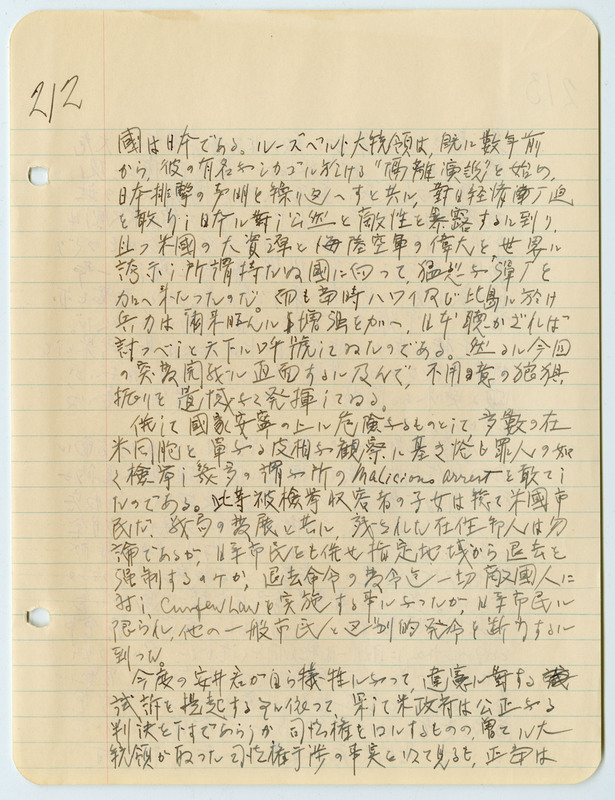 212
國は日本である。ルーズベルト大統領は、既に数年前
から、彼の有名なシカゴに於ける"隔離演説"を始め、
日本排撃の声明を繰り返へすと共に、對日経済圧迫
を敢行し日本に對し公然と敵性を暴露するに到り、
且つ米國の大資源と海陸空軍の偉大を、世界に
誇示し所謂持たぬ國に向って、猛烈な弾圧を
加へ来たったのだ。而も当時ハワイ及び比島に於け
兵力は満来旺んに増強を加へ、日本聴かざれば
討つべしと天下に呼號してゐたのである。然るに今回
の突発開戦に直面するに及んで、不用意の狼狽
振りを遺憾なく発揮してゐる。
供して國家安寧の上に危険なるものとして多数の在
米同胞を単なる皮相な観察に基き恰も罪人の如
く検挙し幾多の謂ゆ所のMalicious arrestを敢てし
たのである。此等被検挙収容者の子女は総て米國市
民だ、戦局の発展と共に、残された在住邦人は勿
論であるが、日系市民をも併せ指定地域から退去を
強制するのだが、退去命令の発令迄一切敵國人に
対し、Curfew Lawを実施する事になったが、日系市民に
限られ、他の一般市民と区別的発令を断行するに
到った。
今度の安井君が自ら犠牲になって、違憲に対する
試訴を提起するに依って、果して米政府は公正なる
判決を下すであらうか 司法権を口にするものの、曽てル大
統領が取った司法権干渉の事実に依て見るも、正邪は